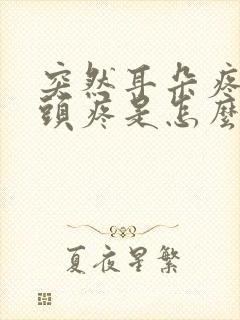 突然耳朵疼
頭疼是怎麼
夏夜星繁